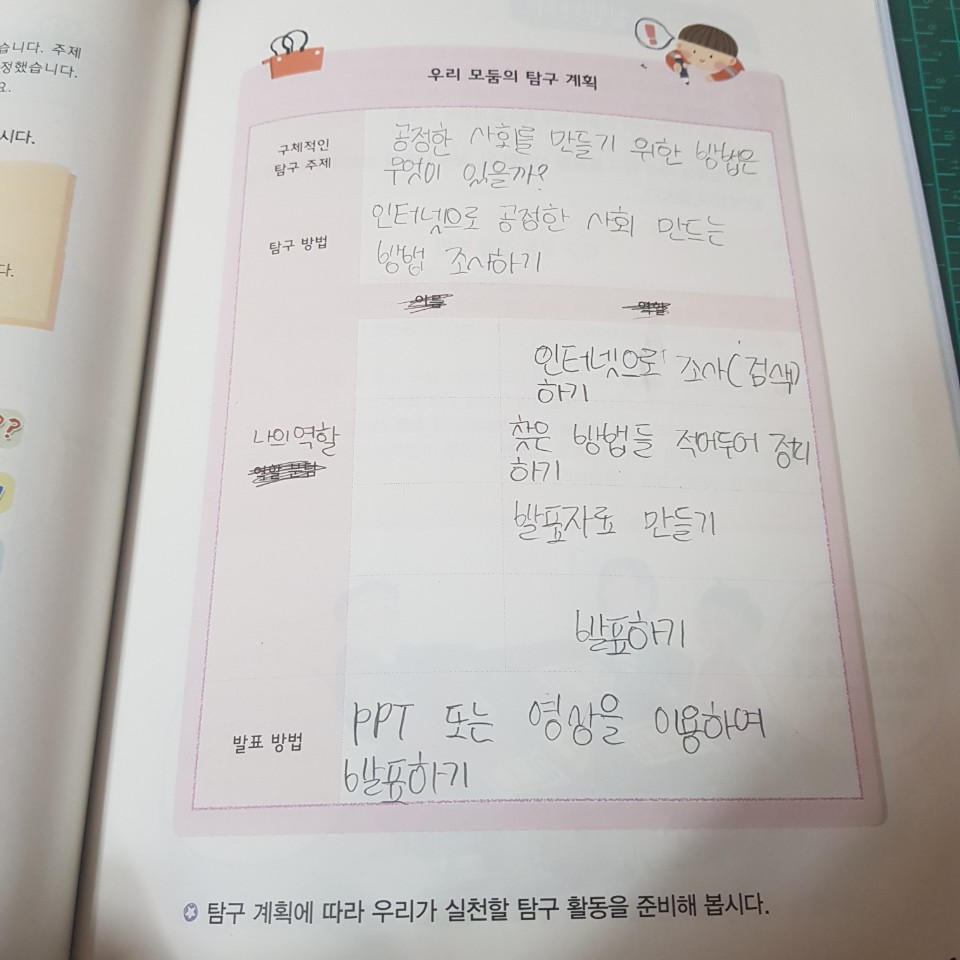 습니다. 주제
정했습니다.
요.
시다.
다.
?
!
우리 모둠의 탐구 계획
구체적인
탐구 주제
공정한 사회를 만들기 위한 방법은
무엇이 있을까?
탐구 방법
인터넷으로 공정한 사회 만드는
방법 조사하기
이름
역할
인터넷으로 조사(검색)
하기
나의역할
역할 분담
찾은 방법들 적어두어 정리
하기
발표자료 만들기
발표하기
발표 방법
PPT 또는 영상을 이용하여
발표하기
탐구 계획에 따라 우리가 실천할 탐구 활동을 준비해 봅시다.